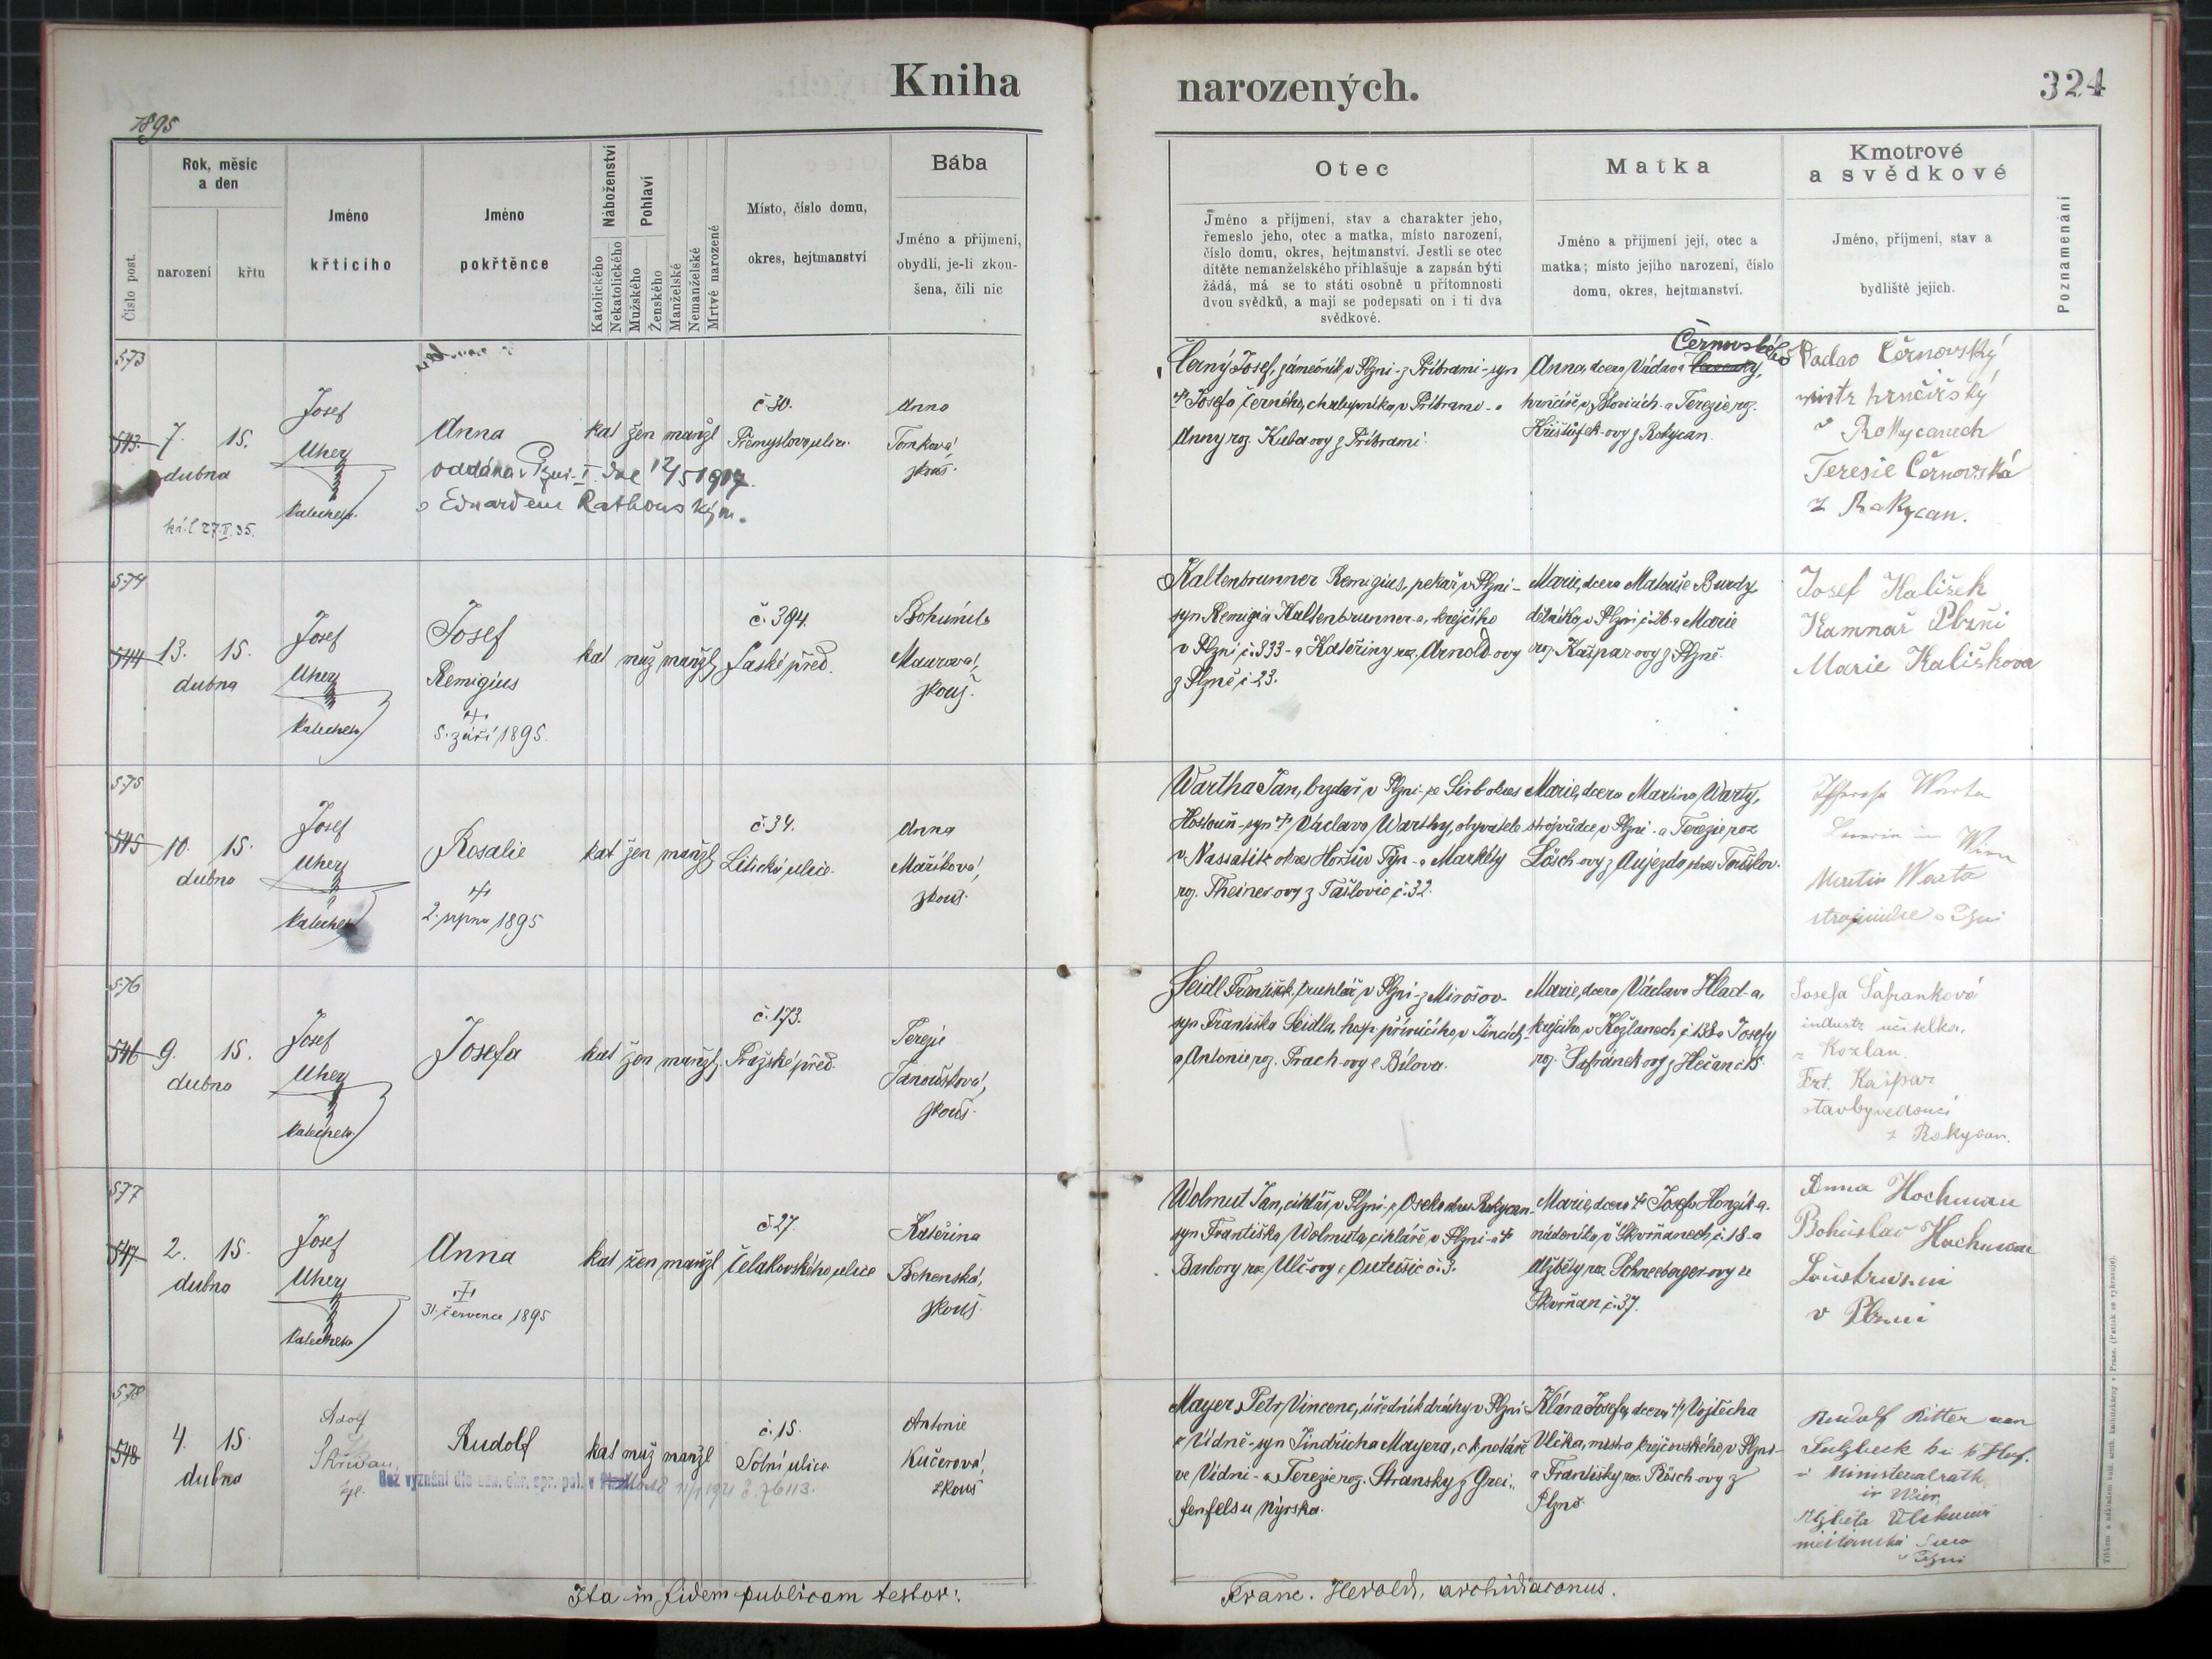 Kniha narozených.
324
1895
Číslo post.
Rok, měsíc
a den
narození
křtu
Jméno
křticího
Jméno
pokřtěnce
Náboženství
Katolického
Nekatolického
Pohlaví
Mužského
Ženského
Manželské
Nemanželské
Mrtvě narozené
Místo, číslo domu,
okres, hejtmanství
Bába
Jméno a příjmení,
obydlí, je-li zkou-
šena, čili nic
Otec
Jméno a příjmení, stav a charakter jeho,
řemeslo jeho, otec a matka, místo narození,
číslo domu, okres, hejtmanství. Jestli se otec
dítěte nemanželského přihlašuje a zapsán býti
žádá, má se to státi osobně u přítomnosti
dvou svědků, a mají se podepsati on i ti dva
svědkové.
Matka
Jméno a příjmení její, otec a
matka; místo jejího narození, číslo
domu, okres, hejtmanství.
Kmotrové
a svědkové
Jméno, příjmení, stav a
bydliště jejich.
Poznamenání
573
543
7. 15.
dubna
Josef
Uher
katecheta
Anna
oddána v Plzni-I. dne 12/5 1917
s Eduardem Rathouským.
kat žen manžl
č 30.
Přemyslova ulice
Anna
Tomková
zkouš.
Černý Josef, zámečník v Plzni - z Příbrami - syn
† Josefa Černého, chalupníka v Příbrami - a
Anny roz. Kuba-ovy z Příbrami
Černovského
Anna, dcera Václava
hrnčíře v Blovicích a Terezie roz.
Krištůfek-ovy z Rokycan.
Vaclav Černovský
mistr hrnčířský
v Rokycanech
Teresie Černovská
z Rokycan.
574
544
13. 15.
dubna
Josef
Uher
katecheta
Josef
Remigius
†
5. září 1895.
kat muž manžl
č. 394.
Saské před.
Bohumila
Maurová,
zkouš.
Kaltenbrunner Remigius, pekař v Plzni -
syn Remigia Kaltenbrunner-a, krejčího
v Plzni č. 333 - a Kateřiny roz. Arnold-ovy
z Plzně č 23.
Marie, dcera Matouše Burdy
dělníka v Plzni č 26 - a Marie
roz. Kašpar-ovy z Plzně.
Josef Kališek
Kamnář Plzni
Marie Kališkova
575
545
10. 15.
dubna
Josef
Uher
katecheta
Rosalie
†
2. srpna 1895
kat žen manžl
č. 34.
Litická ulice.
Anna
Maříková,
zkouš.
Wartha Jan, brzdař v Plzni - ze Sirb okres
Hostouň - syn † Václava Warthy, obyvatele
v Nassatitz okres Horšův Týn - a Markéty
roz. Theiner-ovy z Tašlovic č. 32.
Marie, dcera Martina Warty,
strojvůdce v Plzni - a Terezie roz
Lösch-ovy z Aujezda
Martin Warta
576
546
9. 15.
dubna
Josef
Uher
katecheta
Josefa
kat žen manžl.
č. 173.
Pražské před.
Terezie
Janoušková,
zkouš.
Seidl František, truhlář v Plzni - z Mirošov -
syn Františka Seidla,
a Antonie roz. Prach-ovy z Bílova.
Marie, dcera Václava Hlad-a,
krejčího v Kožlanech č 138 a Josefy
roz. Šafránek-ovy z Hečan č 15.
Josefa Šafranková
industr. učitelka.
z Kozlan.
Frt. Kašpar
stavbyvedoucí
z Rokycan.
577
547
2. 15.
dubna
Josef
Uher
katecheta
Anna
†
31. července 1895
kat žen manžl
č. 27.
Čelakovského ulice
Kateřina
Bohenská,
zkouš.
Wolmut Jan, cihlář v Plzni - z Oseka okres Rokycan -
syn Františka Wolmuta, cihláře v Plzni - a †
Barbory roz. Ulč-ovy z Outušic č. 3.
Marie, dcera † Josefa Honzík-a.
nádeníka v Skvrňanech č. 18 - a
Alžběty roz. Schneeberger-ovy ze
Skvrňan č. 37.
Anna Hochman
Bohuslav Hochman
v Plzni
578
548
4. 15.
dubna
Adolf
Skřivan,
kpl.
Rudolf
kat muž manžl
Bez vyznání dle
č. 15.
Solní ulice
Antonie
Kučerová,
zkouš
Mayer Petr Vincenc, úředník dráhy v Plzni -
z Vídně - syn Jindřicha Mayera, c. k. notáře
ve Vídni - a Terezie roz. Stransky z Grei-
fenfelsu z Nýrska.
Klára Josefa, dcera † Vojtěcha
Vlčka, mistra krejčovského v Plzni -
a Františky roz. Rösch-ovy z
Plzně.
Rudolf Ritter von
Ministerialrath
in Wien,
Ita in fidem publicam testor:
Franc. Herold, archidiaconus.